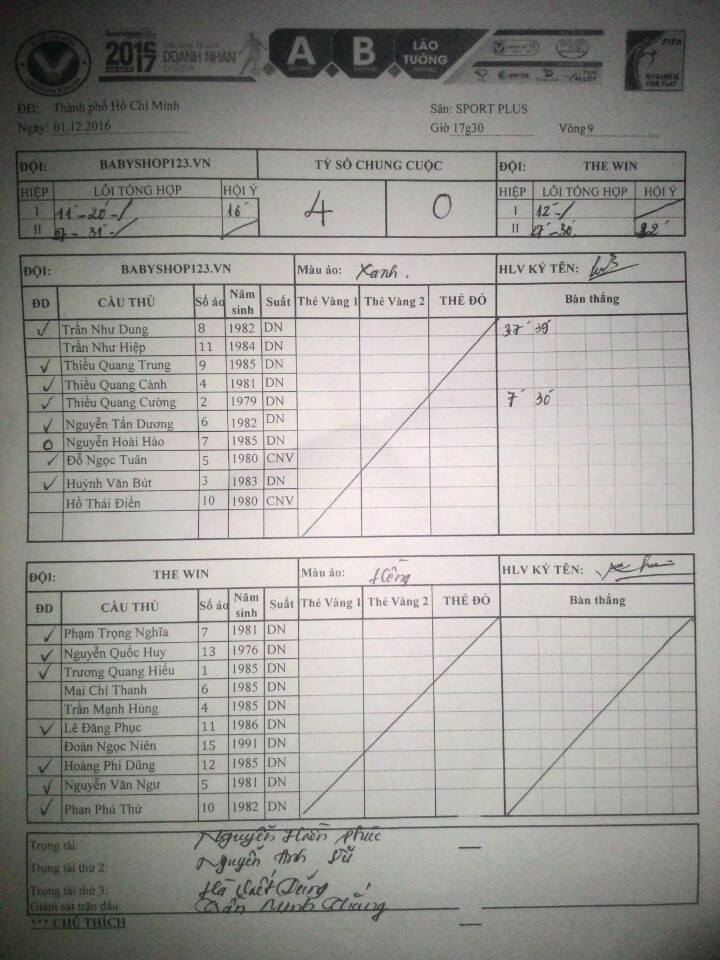 2016 2017 DOANH NHÂN A B LÃO TƯỚNG FIFA
MY GAME IS FAIR PLAY
ĐĐ: Thành phố Hồ Chí Minh Sân: SPORT PLUS
Ngày: 01.12.2016 Giờ 17g30 Vòng 9
ĐỘI: BABYSHOP123.VN TỶ SỐ CHUNG CUỘC ĐỘI: THE WIN
HIỆP LỖI TỔNG HỢP HỘI Ý 4 0 HIỆP LỖI TỔNG HỢP HỘI Ý
I 11' - 20' - / 16' I 12' - /
II 27' - 31' - / II 27' - 30' 22'
ĐỘI: BABYSHOP123.VN Màu áo: Xanh. HLV KÝ TÊN:
ĐD CẦU THỦ Số áo Năm sinh Suất Thẻ Vàng 1 Thẻ Vàng 2 THẺ ĐỎ Bàn thắng
✓ Trần Như Dung 8 1982 DN 37' 39'
Trần Như Hiệp 11 1984 DN
✓ Thiều Quang Trung 9 1985 DN
✓ Thiều Quang Cảnh 4 1981 DN
✓ Thiều Quang Cường 2 1979 DN 7' 30'
✓ Nguyễn Tấn Dương 6 1982 DN
O Nguyễn Hoài Hảo 7 1985 DN
✓ Đỗ Ngọc Tuân 5 1980 CNV
✓ Huỳnh Văn Bút 3 1983 DN
Hồ Thái Điền 10 1980 CNV
ĐỘI: THE WIN Màu áo: Hồng HLV KÝ TÊN:
ĐD CẦU THỦ Số áo Năm sinh Suất Thẻ Vàng 1 Thẻ Vàng 2 THẺ ĐỎ Bàn thắng
✓ Phạm Trọng Nghĩa 7 1981 DN
✓ Nguyễn Quốc Huy 13 1976 DN
✓ Trương Quang Hiếu 1 1985 DN
Mai Chí Thanh 6 1985 DN
Trần Mạnh Hùng 4 1985 DN
✓ Lê Đăng Phục 11 1986 DN
Đoàn Ngọc Niên 15 1991 DN
✓ Hoàng Phi Dũng 12 1985 DN
✓ Nguyễn Văn Ngư 5 1981 DN
✓ Phan Phú Thứ 10 1982 DN
Trọng tài: Nguyễn Hiền Phúc
Trọng tài thứ 2: Nguyễn Anh Vũ
Trọng tài thứ 3: Hà Viết Dũng
Giám sát trận đấu: Trần Minh Thắng
*** CHÚ THÍCH